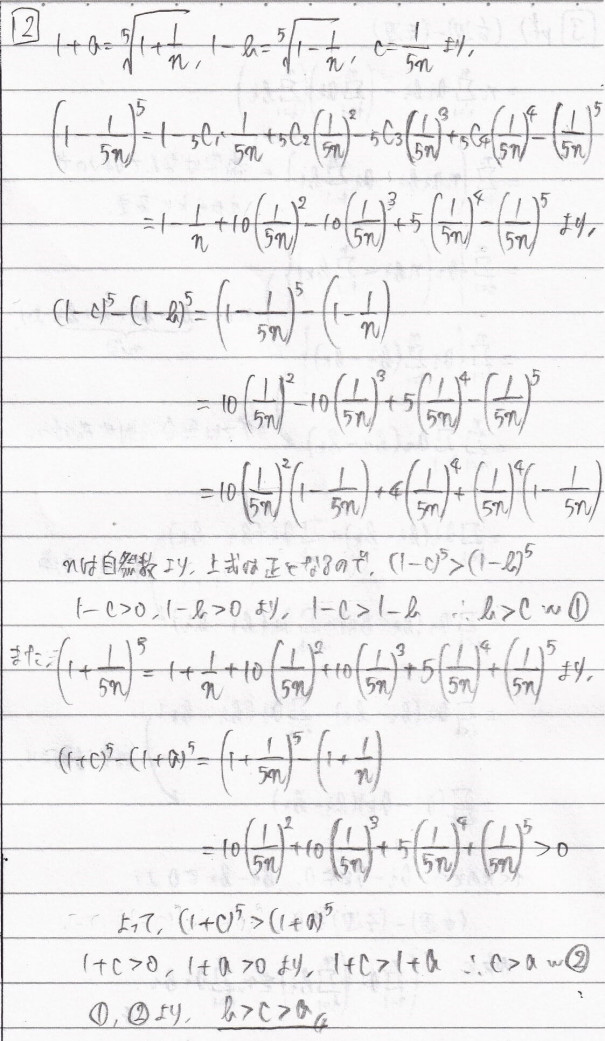 12
1+a=⁵√(1+1/n), 1-b=⁵√(1-1/n), c=1/5n より,
(1-1/5n)⁵=1-₅C₁・1/5n+₅C₂(1/5n)²-₅C₃(1/5n)³+₅C₄(1/5n)⁴-(1/5n)⁵
=1-1/n+10(1/5n)²-10(1/5n)³+5(1/5n)⁴-(1/5n)⁵ より,
(1-c)⁵-(1-b)⁵=(1-1/5n)⁵-(1-1/n)
=10(1/5n)²-10(1/5n)³+5(1/5n)⁴-(1/5n)⁵
=10(1/5n)²(1-1/5n)+4(1/5n)⁴+(1/5n)⁴(1-1/5n)
nは自然数より, 上式は正となるので, (1-c)⁵>(1-b)⁵
1-c>0, 1-b>0 より, 1-c>1-b ∴b>c 〜①
また, (1+1/5n)⁵=1+1/n+10(1/5n)²+10(1/5n)³+5(1/5n)⁴+(1/5n)⁵より,
(1+c)⁵-(1+a)⁵=(1+1/5n)⁵-(1+1/n)
=10(1/5n)²+10(1/5n)³+5(1/5n)⁴+(1/5n)⁵>0
よって, (1+c)⁵>(1+a)⁵
1+c>0, 1+a>0 より, 1+c>1+a ∴c>a 〜②
①, ②より, b>c>a